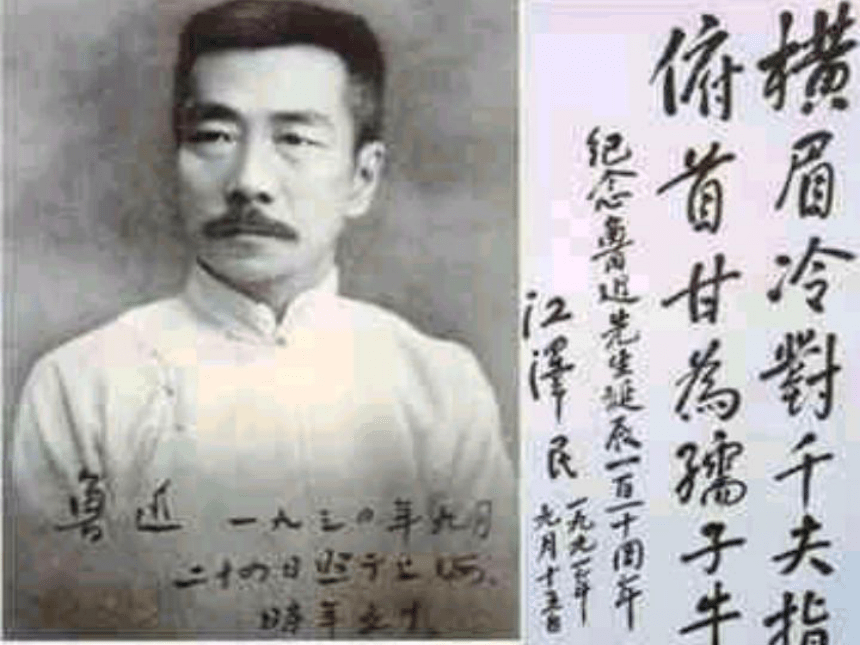 魯迅 一九三〇年九月
二十四日照于上海，
時年五十
橫眉冷對千夫指
俯首甘為孺子牛
紀念魯迅先生誕辰一百一十周年
江澤民
一九九一年
九月十五日